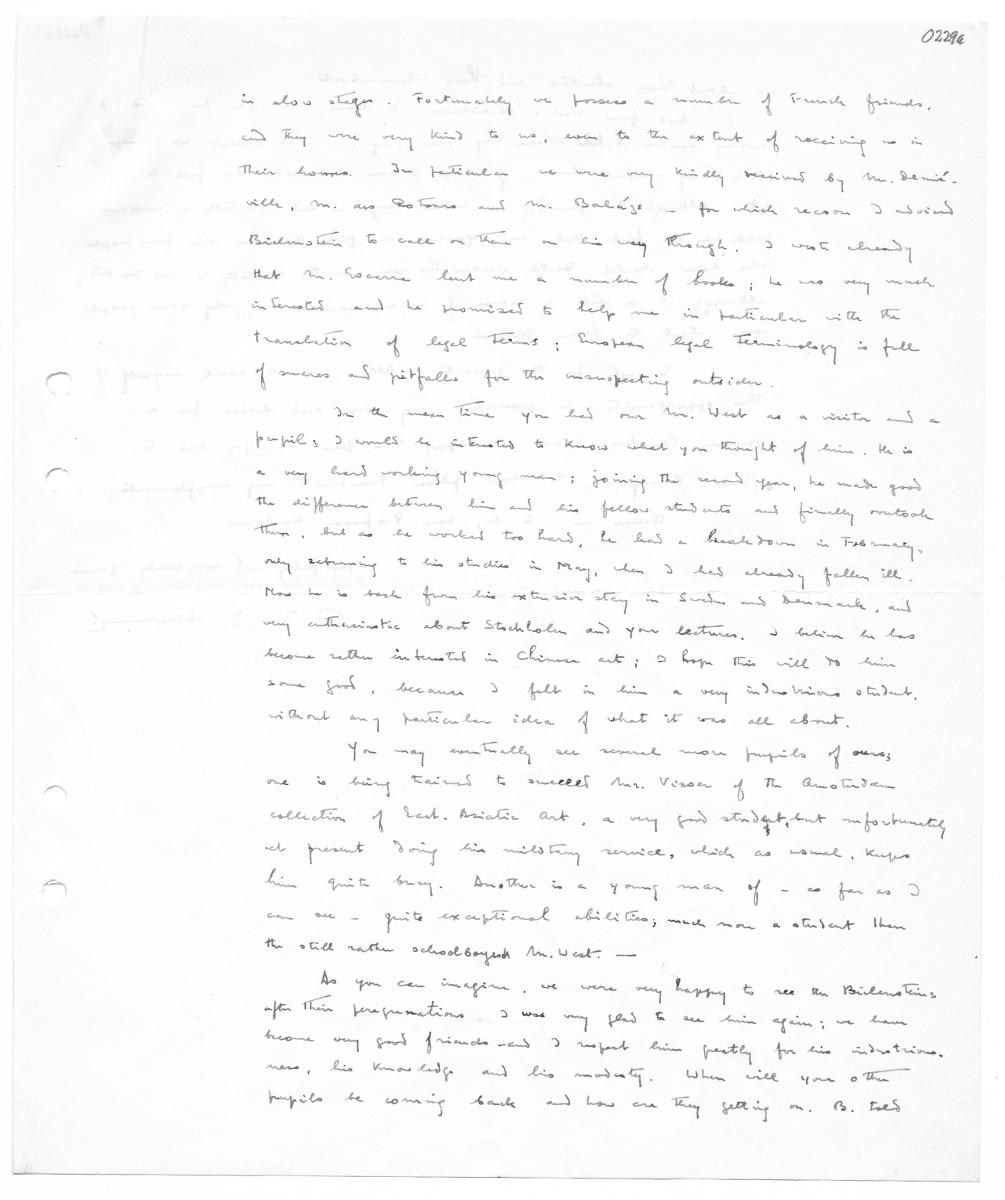 0229a
in slow stages. Fortunately we possess a number of French friends,
and they were very kind to us, even to the extent of receiving us in
their homes. In particular we were very kindly received by Mr. Demié-
ville, M. des Rotours and M. Balázs – for which reason I advised
Bielenstein to call on them on his way through. I wrote already
that Mr. Escarra lent me a number of books; he was very much
interested and he promised to help me in particular with the
translation of legal terms; European legal terminology is full
of snares and pitfalls for the unsuspecting outsider.
In the mean time you had our Mr. West as a visitor and a
pupil; I would be interested to know what you thought of him. He is
a very hard working young man; joining the second year, he made good
the difference between him and his fellow students and finally overtook
them, but as he worked too hard, he had a breakdown in February,
only returning to his studies in May, when I had already fallen ill.
Now he is back from his extensive stay in Sweden and Denmark, and
very enthusiastic about Stockholm and your lectures. I believe he has
become rather interested in Chinese art; I hope this will do him
some good, because I felt in him a very industrious student,
without any particular idea of what it was all about.
You may eventually see several more pupils of ours;
one is being trained to succeed Mr. Visser of the Amsterdam
collection of East. Asiatic Art, a very good student, but unfortunately
at present doing his military service, which as usual, keeps
him quite busy. Another is a young man of – as far as I
can see – quite exceptional abilities; much more a student than
the still rather schoolboyish Mr. West. —
As you can imagine, we were very happy to see the Bielensteins
after their peregrinations. I was very glad to see him again; we have
become very good friends and I respect him greatly for his industrious-
ness, his knowledge and his modesty. When will your other
pupils be coming back and how are they getting on. B. told